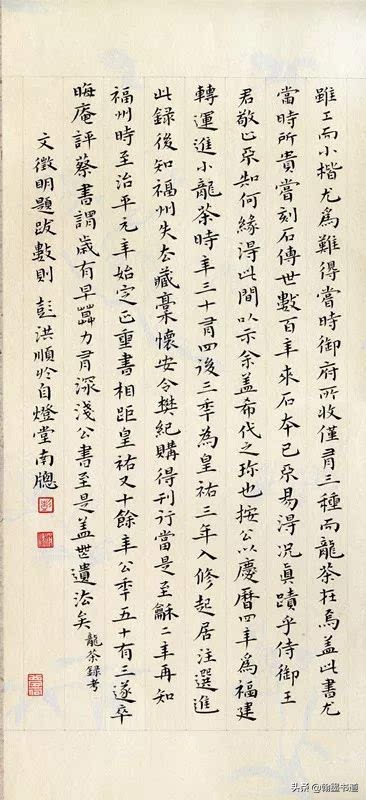 雖工而小楷尤為難得當時御府所收僅有三種而龍茶在焉蓋此書尤
當時所貴嘗刻石傳世數百年來石本已不易得況真蹟乎侍御王
君敬止不知何緣得此間以示余蓋希代之珍也按公以慶曆四年為福建
轉運進小龍茶時年三十有四後三年為皇祐三年入修起居注選進
此錄後知福州失去藏稾懷安令樊紀購得刊行當是至龢二年再知
福州時至治平元年始定正重書相距皇祐又十餘年公年五十有三遂卒
晦庵評蔡書謂歲有早莫力有深淺公書至是盖世遺法矣 龍茶録考
文徵明題跋數則 彭洪順於自燈堂南牕
头条@翰墨书道